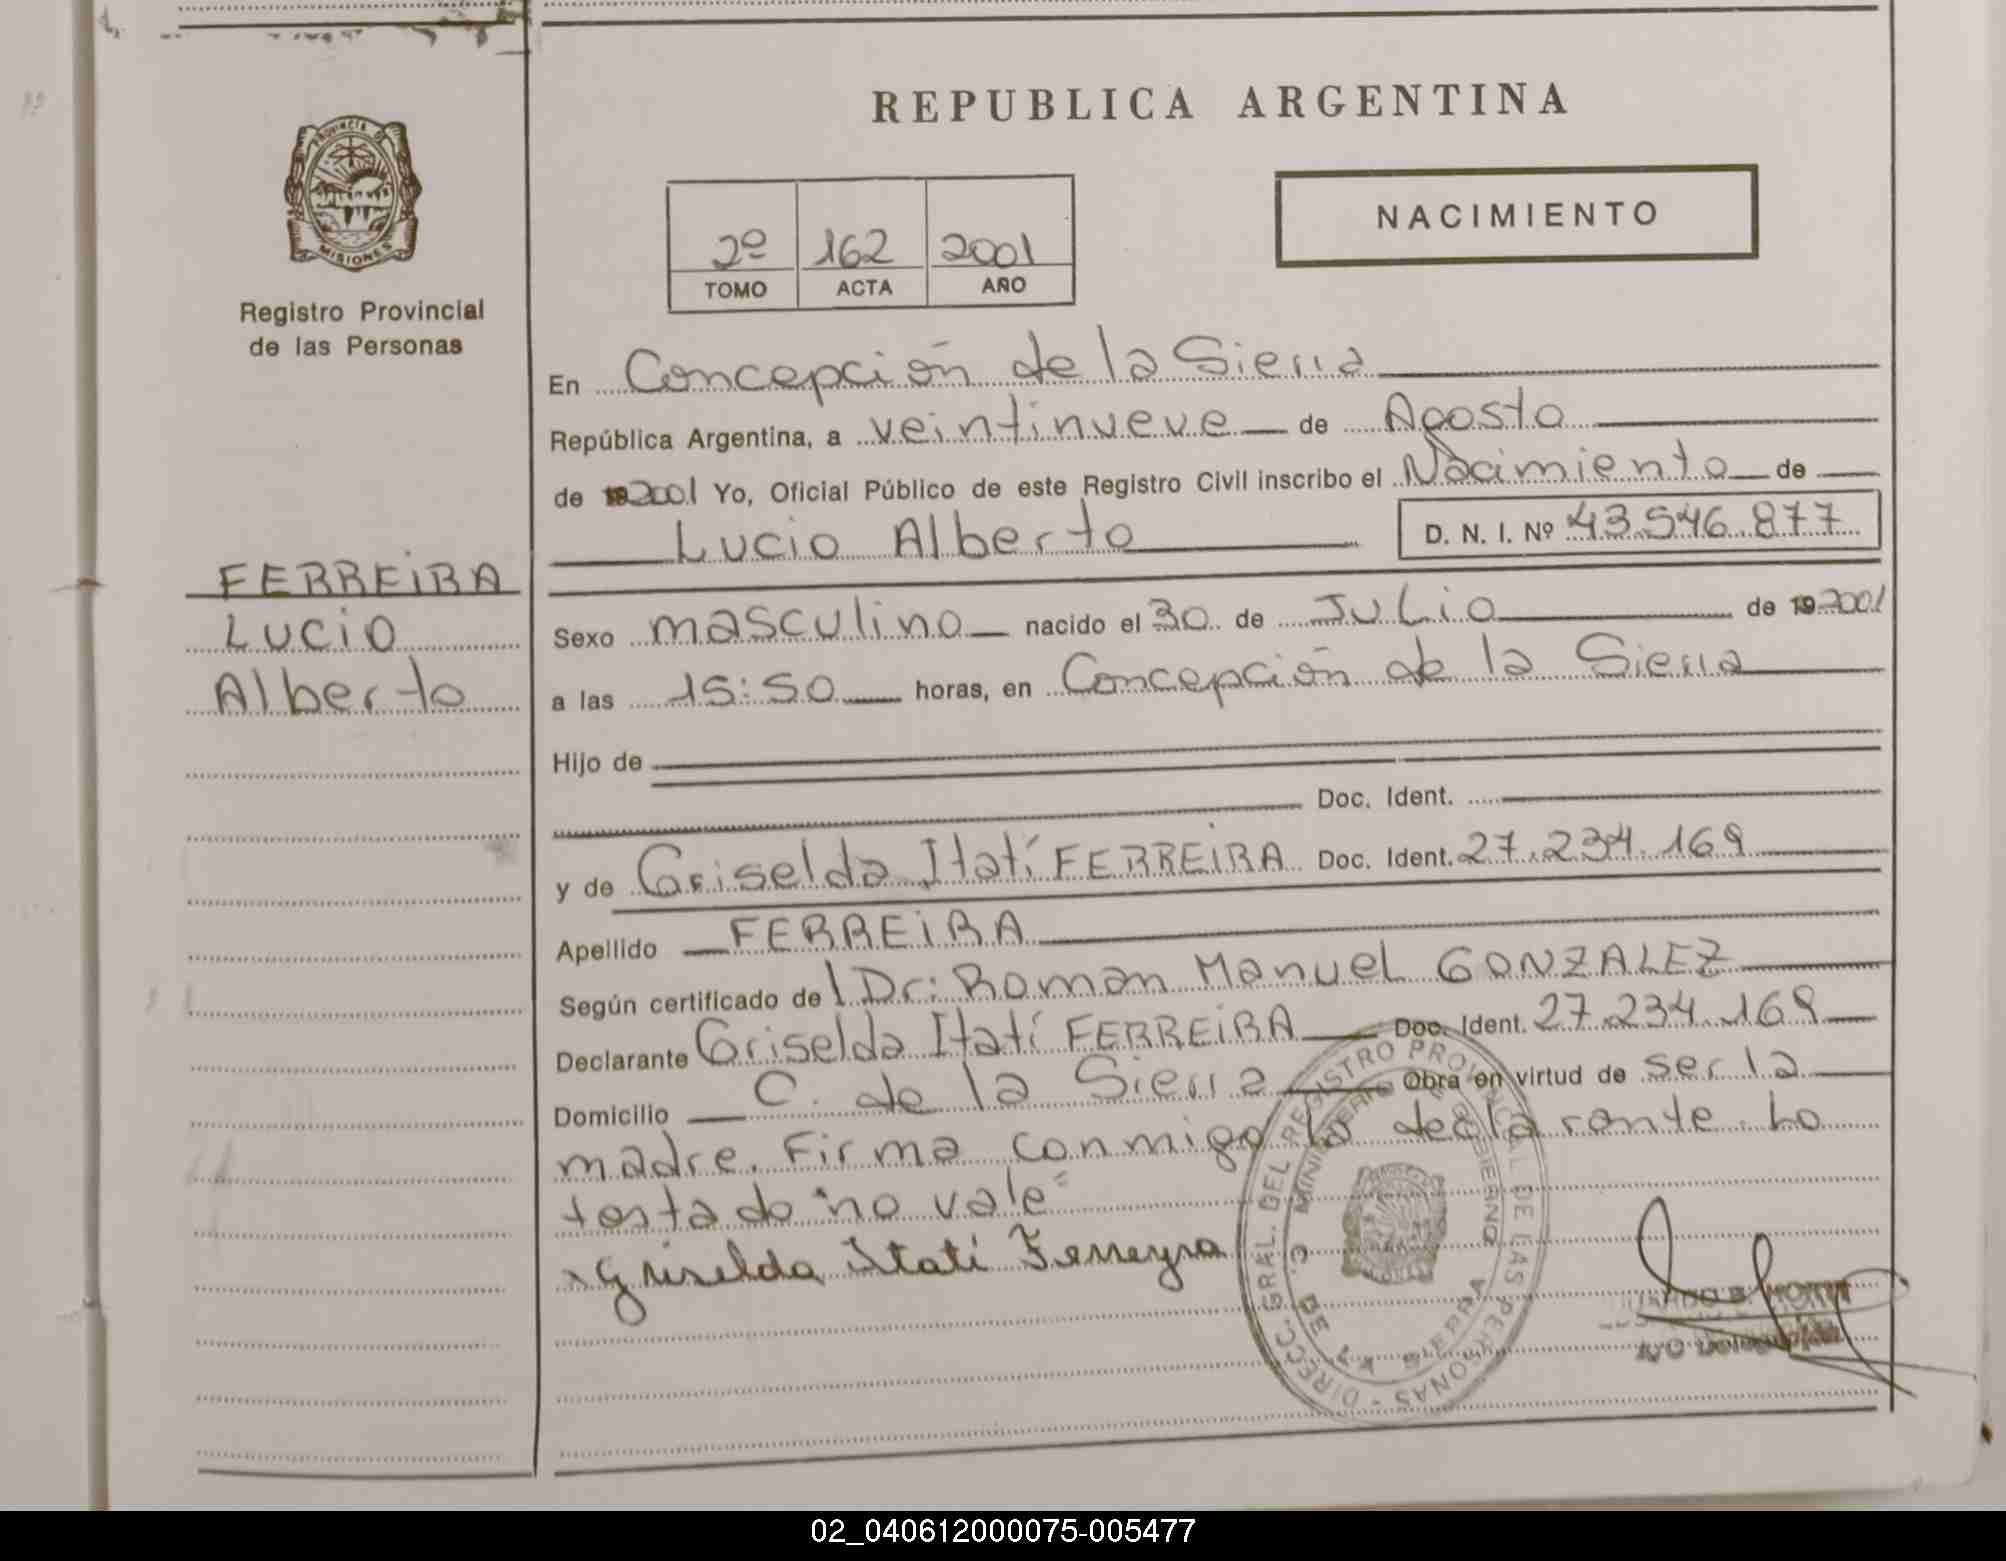 REPUBLICA ARGENTINA
PROVINCIA DE
MISIONES
Registro Provincial
de las Personas
NACIMIENTO
2º 162 2001
TOMO ACTA AÑO
En Concepción de la Sierra
República Argentina, a veintinueve de Agosto
de 19 2001 Yo, Oficial Público de este Registro Civil inscribo el Nacimiento de
Lucio Alberto D. N. I. Nº 43.546.877
FERREIRA
Lucio
Alberto
Sexo masculino nacido el 30 de Julio de 19 2001
a las 15:50 horas, en Concepción de la Sierra
Hijo de
Doc. Ident.
y de Griselda Itatí FERREIRA Doc. Ident. 27.234.169
Apellido FERREIRA
Según certificado de Dr: Roman Manuel GONZALEZ
Declarante Griselda Itatí FERREIRA Doc. Ident. 27.234.169
Domicilio C. de la Sierra Obra en virtud de ser la
madre. Firma conmigo la declarante. Lo
testado "no vale"
Griselda Itati Ferreyra
DIRECC. GRAL. DEL REGISTRO PROVINCIAL DE LAS PERSONAS
MINISTERIO DE GOBIERNO
C. DE LA SIERRA
02_040612000075-005477